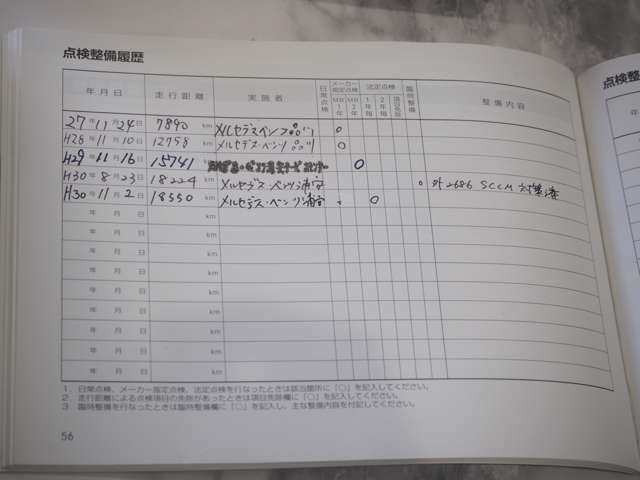 点検整備履歴
年月日 走行距離 実施者 日常点検 メーカー指定点検 MB1年 MB2年 法定点検 1年毎 2年毎 項目免除 臨時整備 整備内容
27年11月24日 7890km メルセデスベンツ品川 ○
H28年11月10日 12758km メルセデス・ベンツ品川 ○
H29年11月16日 15741 ○
H30年8月23日 18224km メルセデス・ベンツ浦安 ○ 外2686 SCCM
H30年11月2日 18550km メルセデス・ベンツ浦安 ○
年 月 日 km
年 月 日 km
年 月 日 km
年 月 日 km
年 月 日 km
年 月 日 km
年 月 日 km
年 月 日 km
年 月 日 km
1 日常点検、メーカー指定点検、法定点検を行なったときは該当箇所に「○」を記入してください。
2 走行距離による点検項目の免除があったときは項目免除欄に「○」を記入してください。
3 臨時整備を行なったときは臨時整備欄に「○」を記入し、主な整備内容を付記してください。
56
点検整